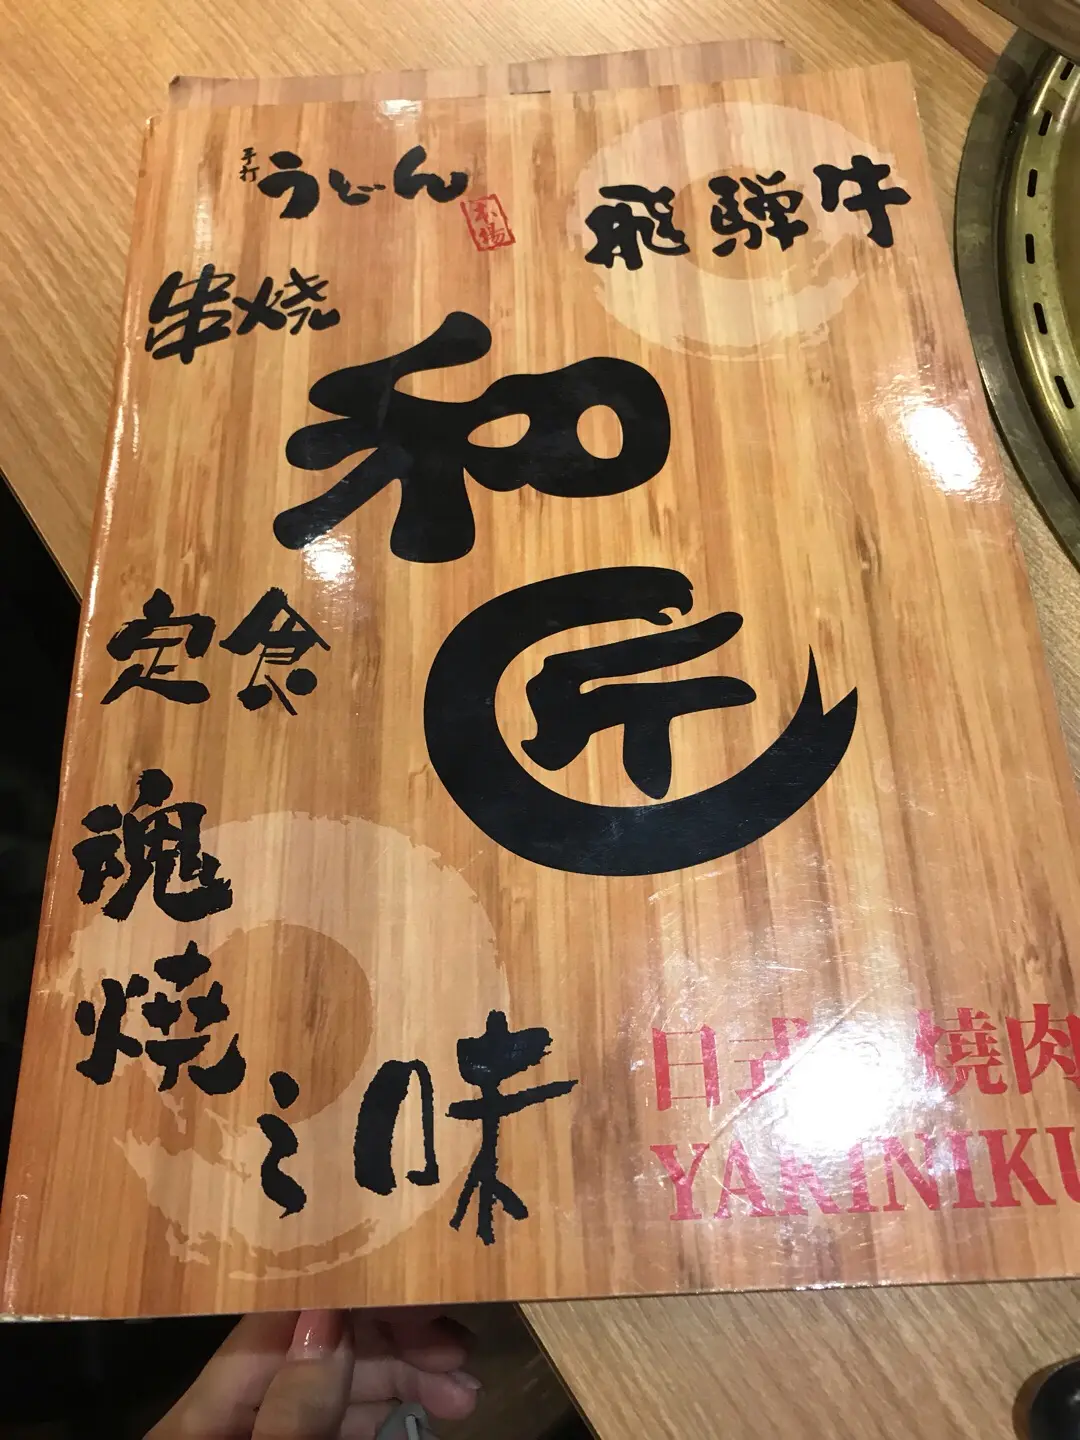 手打
うどん
本場
飛騨牛
串焼
和
匠
定食
魂
燒
之味
日式 燒肉
YAKINIKU